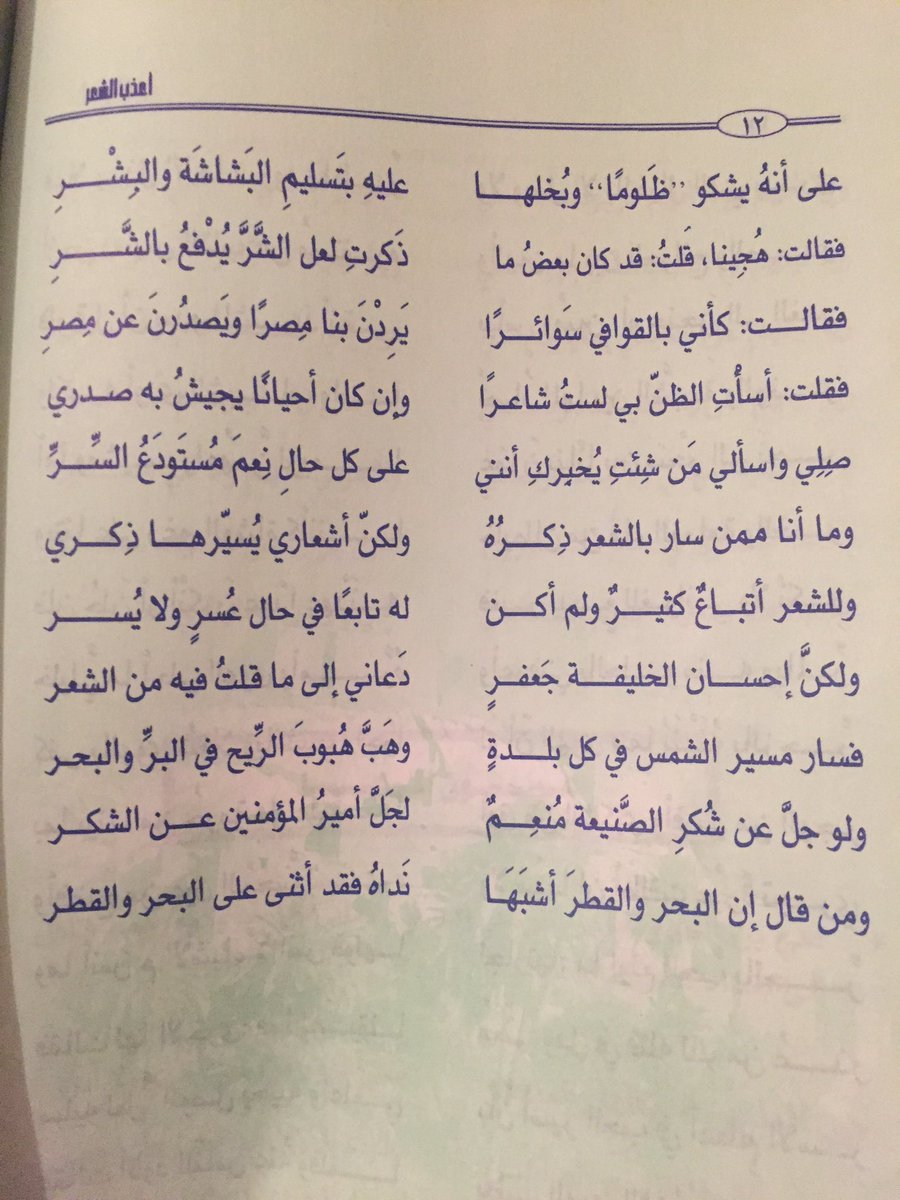 أعذب الشعر
١٢
على أنهُ يشكو ”ظَلومًا“ وبُخلهـــا عليهِ بتَسليمِ البَشاشَة والبِشْـــرِ
فقالت: هُجِينا، قلتُ: قد كان بعضُ ما ذَكرتِ لعل الشَّرَّ يُدْفعُ بالشَّـــرِ
فقالـــت: كأني بالقوافي سَوائـــرًا يَرِدْنَ بنا مِصرًا ويَصدُرنَ عن مِصرِ
فقلت: أسأْتِ الظنّ بي لستُ شاعـرًا وإن كان أحيانًا يجيشُ به صـدري
صِلِي واسألي مَن شِئتِ يُخبِركِ أنني على كل حالِ نِعمَ مُستَودَعُ السِّـــرِّ
وما أنا ممن سار بالشعر ذِكـــرُهُ ولكنّ أشعاري يُسيّرهـــا ذِكـــري
وللشعر أتباعٌ كثيـــرٌ ولم أكـــن له تابعًا في حال عُسرٍ ولا يُســـر
ولكنَّ إحســـان الخليفـــة جَعفـرٍ دَعاني إلى ما قلتُ فيه من الشعر
فسار مسير الشمس في كل بلـــدةٍ وهَبَّ هُبوبَ الرِّيح في البرِّ والبحـر
ولو جلَّ عن شُكرِ الصَّنيعة مُنعِـــمٌ لجَلَّ أميرُ المؤمنين عـــن الشكـر
ومن قال إن البحر والقطرَ أشبَهَـا نَداهُ فقد أثنى على البحر والقطر